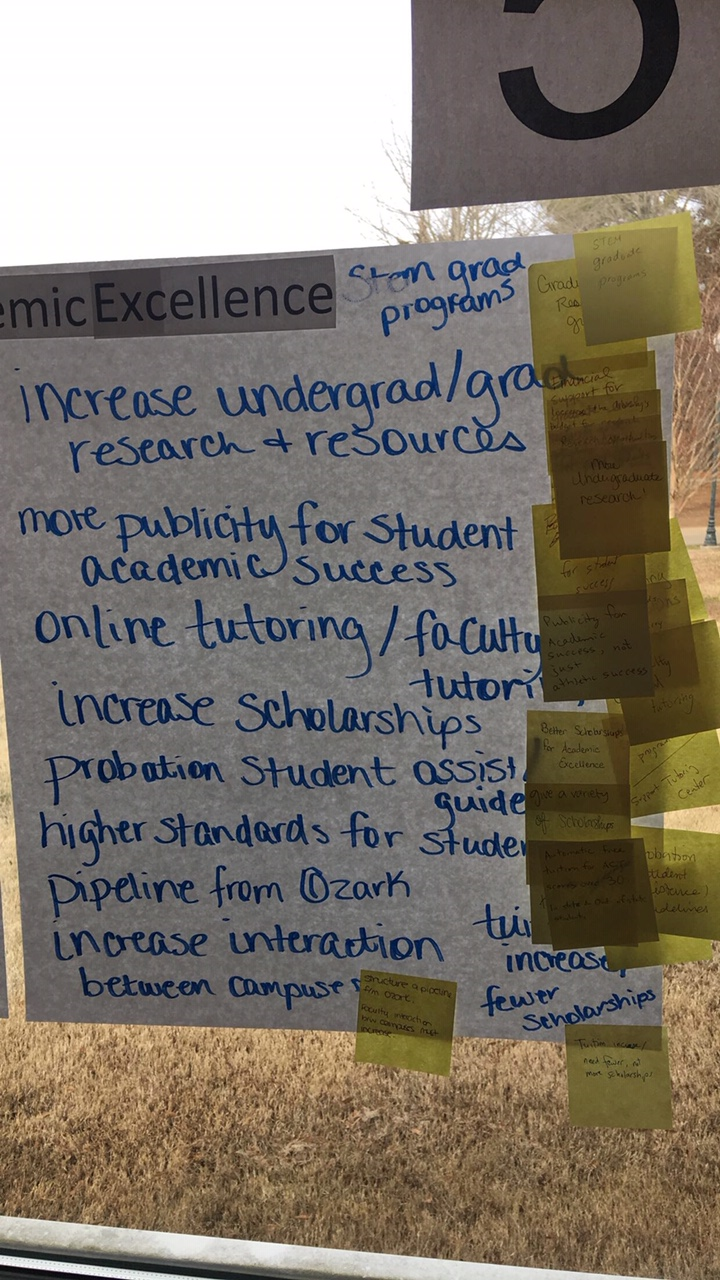 C
emic Excellence
Stem grad
programs
increase undergrad/grad
research + resources
more publicity for student
academic success
online tutoring / faculty
tutori
increase scholarships
probation student assist
guide
higher standards for studen
pipeline from Ozark
increase interaction
between campuses
tui
increase,
fewer
scholarships
STEM
graduate
programs
Gradu
Res
Financial
support for
More
Undergraduate
research!
for student
success!
Publicity for
Academic
success, not
just
athletic success
tutoring
Better Scholarships
for Academic
Excellence
give a variety
of Scholarships
program
Support Tutoring
Center
Automatic free
tuition for
Structure a pipeline
from Ozark.
interaction
btw campuses must
increase.
Tuition increase/
need fewer, not
more scholarships